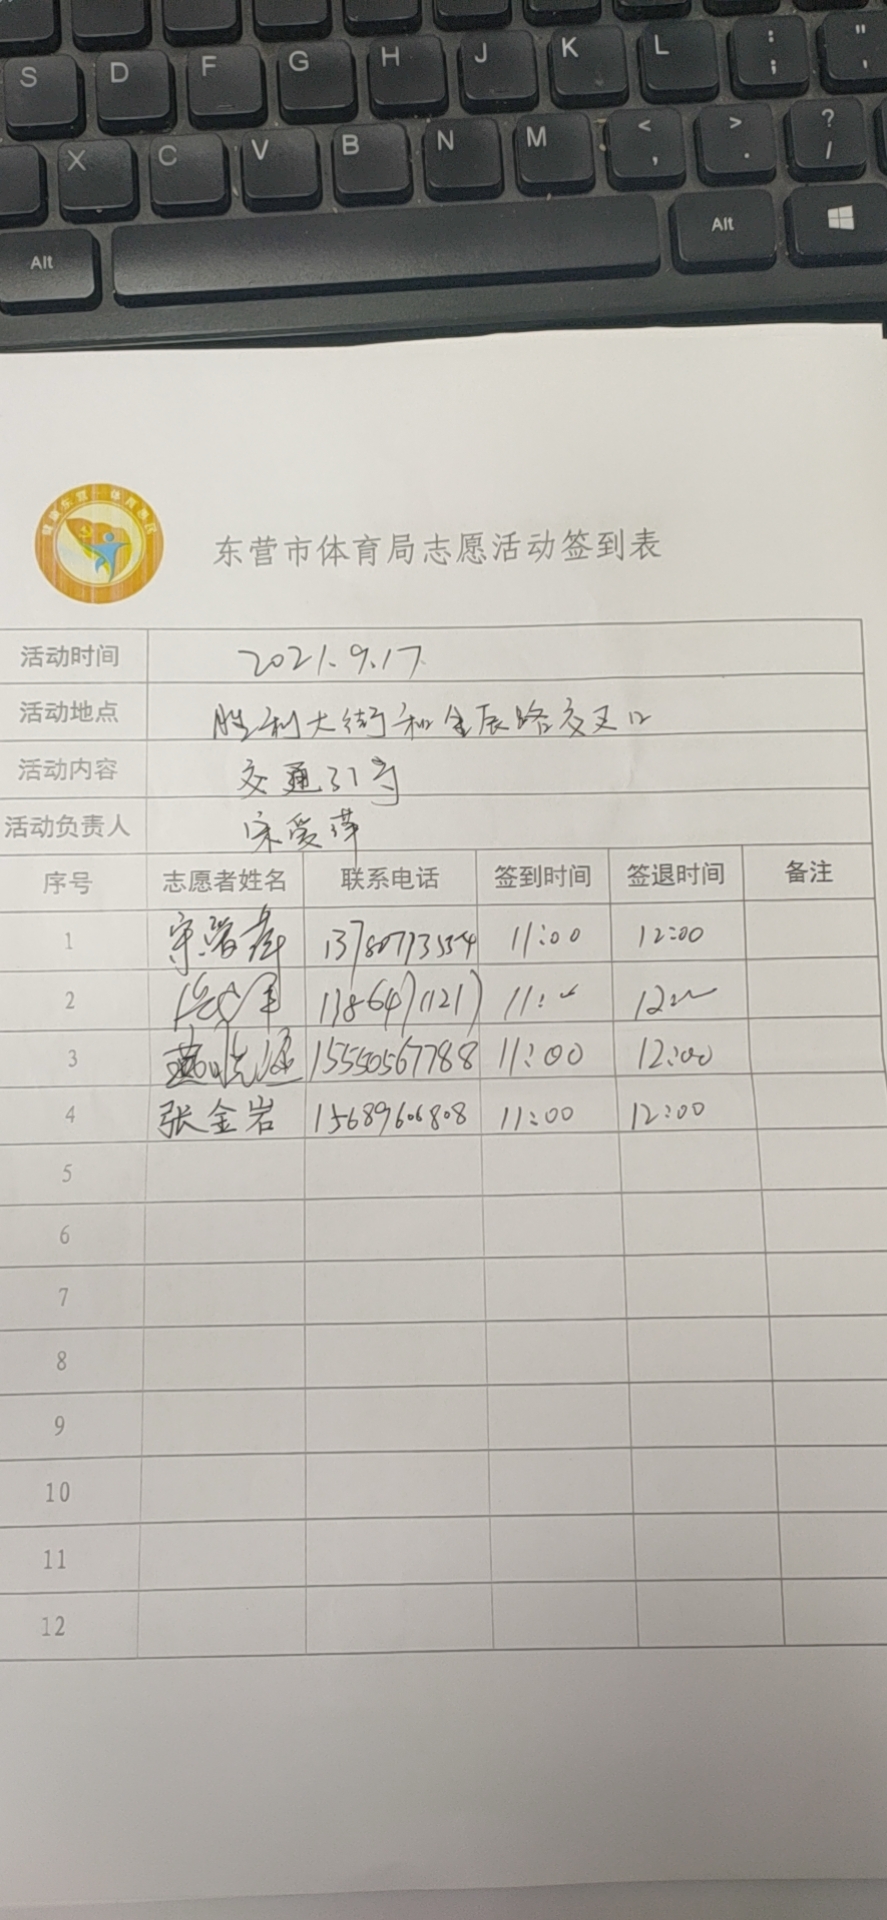 S D F G H J K L : ; " '
X C V B N M < , > . ? /
Alt Alt
健康东营 体育惠民
东营市体育局志愿活动签到表
活动时间 2021.9.17.
活动地点 胜利大街和金辰路交叉口
活动内容 交通引导
活动负责人 宋爱萍
序号 志愿者姓名 联系电话 签到时间 签退时间 备注
1 11:00 12:00
2
3 15550567788 11:00 12:00
4 张金岩 15689606808 11:00 12:00
5
6
7
8
9
10
11
12